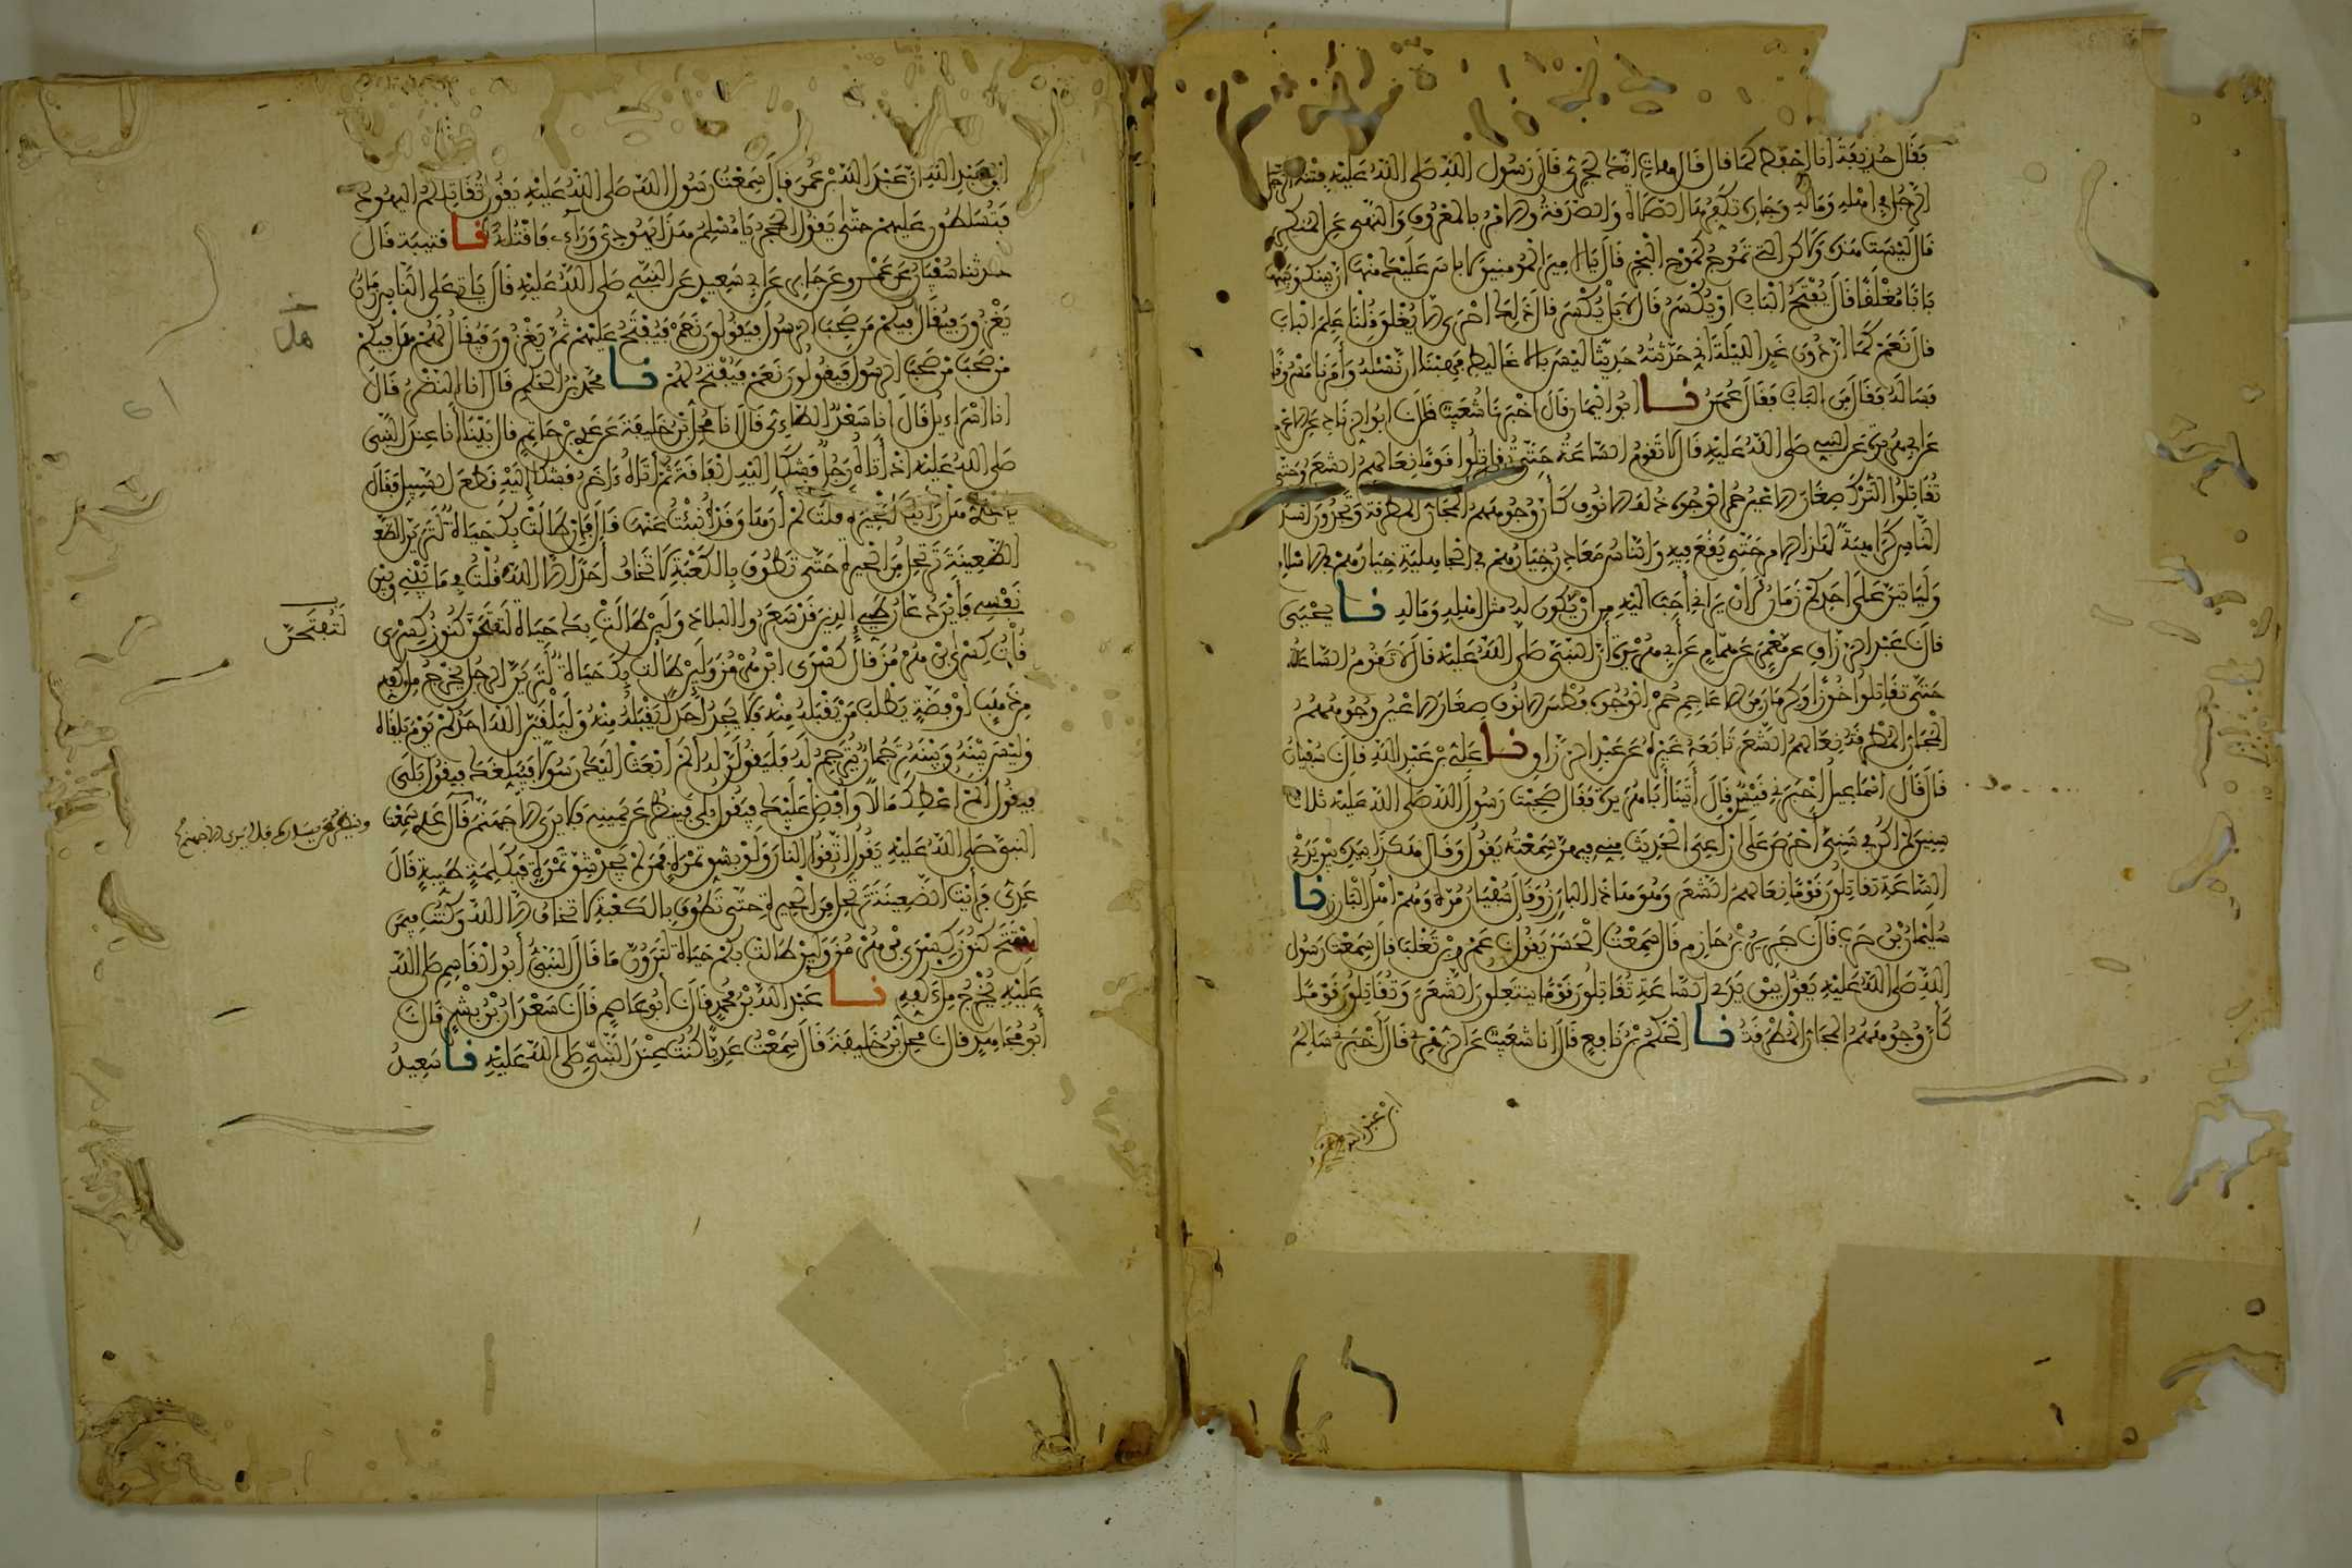 فقال حذيفة أنا أحفظ كما قال قال هات إنك لجرئ قال رسول الله صلى الله عليه فتنة الرجل
الرجل في أهله وماله وجاره تكفرها الصلاة والصدقة والأمر بالمعروف والنهي عن المنكر
قال ليست هذه ولاكن التي تموج كموج البحر قال يا أمير المؤمنين لا بأس عليك منها إن بينك وبينها
بابا مغلقا قال يفتح الباب أو يكسر قال لا بل يكسر قال ذلك أحرى ألا يغلق قلنا علم الباب
قال نعم كما أن دون غد الليلة إني حدثته حديثا ليس بالأغاليط فهبنا أن نسأله وأمرنا مسروقا
فسأله فقال من الباب فقال عمر نا أبو اليمان قال أخبرنا شعيب قال نا أبو الزناد عن الأعرج
عن أبي هريرة عن النبي صلى الله عليه قال لا تقوم الساعة حتى تقاتلوا قوما نعالهم الشعر وحتى
تقاتلوا الترك صغار الأعين حمر الوجوه ذلف الأنوف كأن وجوههم المجان المطرقة وتجدون أشد
الناس كراهية لهذا الأمر حتى يقع فيه والناس معادن خيارهم في الجاهلية خيارهم في الإسلام
وليأتين على أحدكم زمان لأن يراني أحب إليه من أن يكون له مثل أهله وماله نا يحيى
قال نا عبد الرزاق عن معمر عن همام عن أبي هريرة أن النبي صلى الله عليه قال لا تقوم الساعة
حتى تقاتلوا خوزا وكرمان من الأعاجم حمر الوجوه فطس الأنوف صغار الأعين وجوههم
المجان المطرقة نعالهم الشعر تابعه غيره عن عبد الرزاق نا علي بن عبد الله قال نا سفيان
قال قال إسماعيل أخبرني قيس قال أتينا أبا هريرة فقال صحبت رسول الله صلى الله عليه ثلاث
سنين لم أكن في سني أحرص على أن أعي الحديث مني فيهن سمعته يقول وقال هكذا بيده بين يدي
الساعة تقاتلون قوما نعالهم الشعر وهو هذا البارز وقال سفيان مرة وهم أهل البارز نا
سليمان بن حرب قال نا جرير بن حازم قال سمعت الحسن يقول نا عمرو بن تغلب قال سمعت رسول
الله صلى الله عليه يقول بين يدي الساعة تقاتلون قوما ينتعلون الشعر وتقاتلون قوما
كأن وجوههم المجان المطرقة نا الحكم بن نافع قال أنا شعيب عن الزهري قال أخبرني سالم
ابن عبد الله أن عبد الله بن عمر قال سمعت رسول الله صلى الله عليه يقول تقاتلكم اليهود
فتسلطون عليهم حتى يقول الحجر يا مسلم هذا يهودي ورآئي فاقتله نا قتيبة قال
حدثنا سفيان عن عمرو عن جابر عن أبي سعيد عن النبي صلى الله عليه قال يأتي على الناس زمان
يغزون فيقال فيكم من صحب الرسول فيقولون نعم فيفتح عليهم ثم يغزون فيقال لهم هل فيكم
هل
من صحب من صحب الرسول فيقولون نعم فيفتح لهم نا محمد بن الحكم قال أنا النضر قال
أنا إسراءيل قال أنا سعد الطاءي قال أنا محل بن خليفة عن عدي بن حاتم قال بينا أنا عند النبي
صلى الله عليه إذ أتاه رجل فشكا إليه الفاقة ثم أتاه ءاخر فشكا إليه قطع السبيل فقال
يا عدي هل رأيت الحيرة قلت لم أرها وقد أنبئت عنها قال فإن طالت بك حياة لترين الظعـ
الظعينة ترتحل من الحيرة حتى تطوف بالكعبة لا تخاف أحدا إلا الله قلت في ما بيني وبين
نفسي فأين دعار طيء الذين قد سعروا البلاد ولين طالت بك حياة لتفتحن كنوز كسرى
لتفتحن
قلت كسرى بن هرمز قال كسرى بن هرمز ولين طالت بك حياة لترين الرجل يخرج ملء كفه
من ذهب أو فضة يطلب من يقبله منه فلا يجد أحدا يقبله منه وليلقين الله أحدكم يوم يلقاه
وليس بينه وبينه ترجمان يترجم له فليقولن له ألم أبعث إليك رسولا فيبلغك فيقول بلى
فيقول ألم أعطك مالا وأفضل عليك فيقول بلى فينظر عن يمينه فلا يرى إلا جهنم قال عدي سمعت
وينظر عن يساره فلا يرى إلا جهنم
النبي صلى الله عليه يقول اتقوا النار ولو بشق تمرة فمن لم يجد شق تمرة فبكلمة طيبة قال
عدي فرأيت الظعينة ترتحل من الحيرة حتى تطوف بالكعبة لا تخاف إلا الله وكنت فيمن
افتتح كنوز كسرى بن هرمز ولين طالت بكم حياة لترون ما قال النبي أبو القاسم صلى الله
عليه يخرج ملء كفه نا عبد الله بن محمد قال نا أبو عاصم قال نا سعدان بن بشر قال نا
أبو مجاهد قال نا محل بن خليفة قال سمعت عديا كنت عند النبي صلى الله عليه نا سعيد